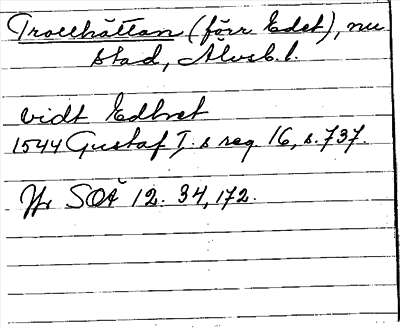 Trollhättan (förr Edet), nu
stad, Älvsb. l.
vidt Edhret
1544 Gustaf I:s reg. 16, s. 737.
Jfr SOÄ 12. 34, 172.